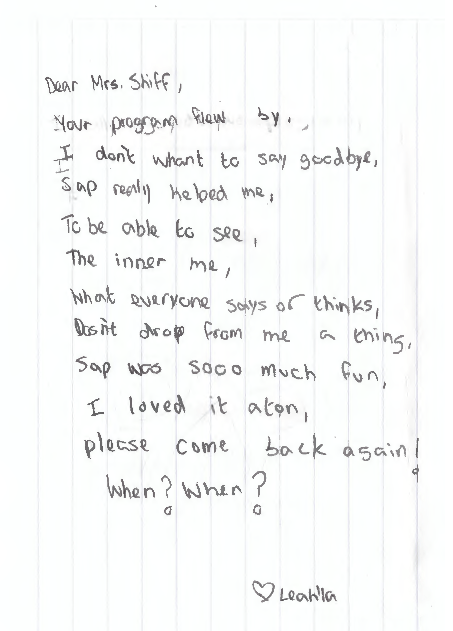 Dear Mrs. Shiff,
Your program flew by.
I don't whant to say goodbye,
Sap really helped me,
To be able to see,
The inner me,
What everyone says or thinks,
Dosn't drop from me a thing,
Sap was sooo much fun,
I loved it aton,
please come back again!
When? When?
♡ Leah'la